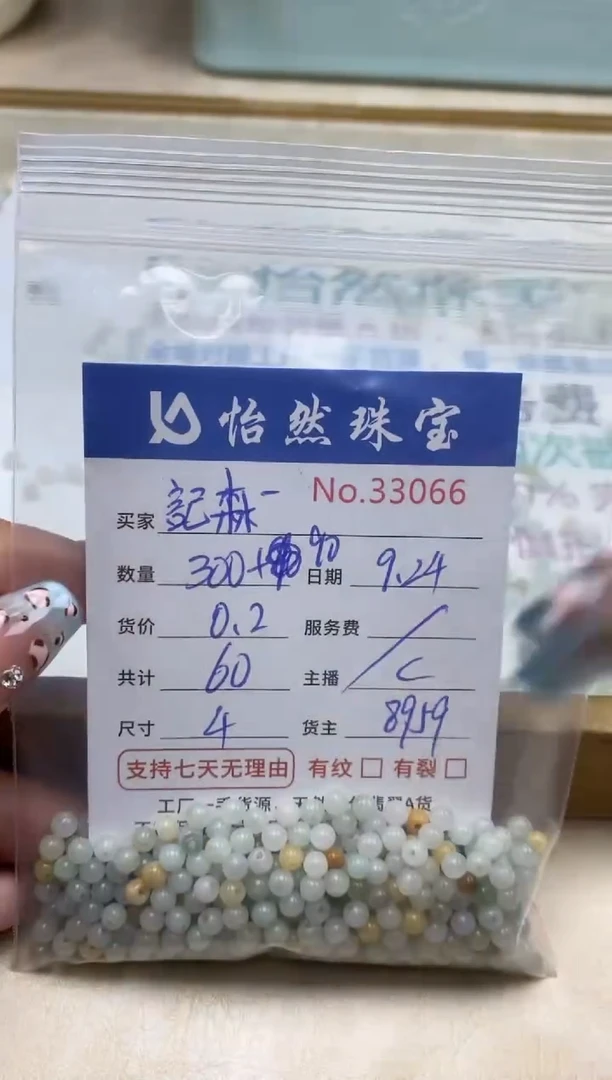 怡然珠宝
No.33066
买家 記森一
数量 300+90 日期 9.24
货价 0.2 服务费 /
共计 60 主播 C
尺寸 4 货主 8959
支持七天无理由 有纹 □ 有裂 □
工厂一手货源，天然 翡翠A货